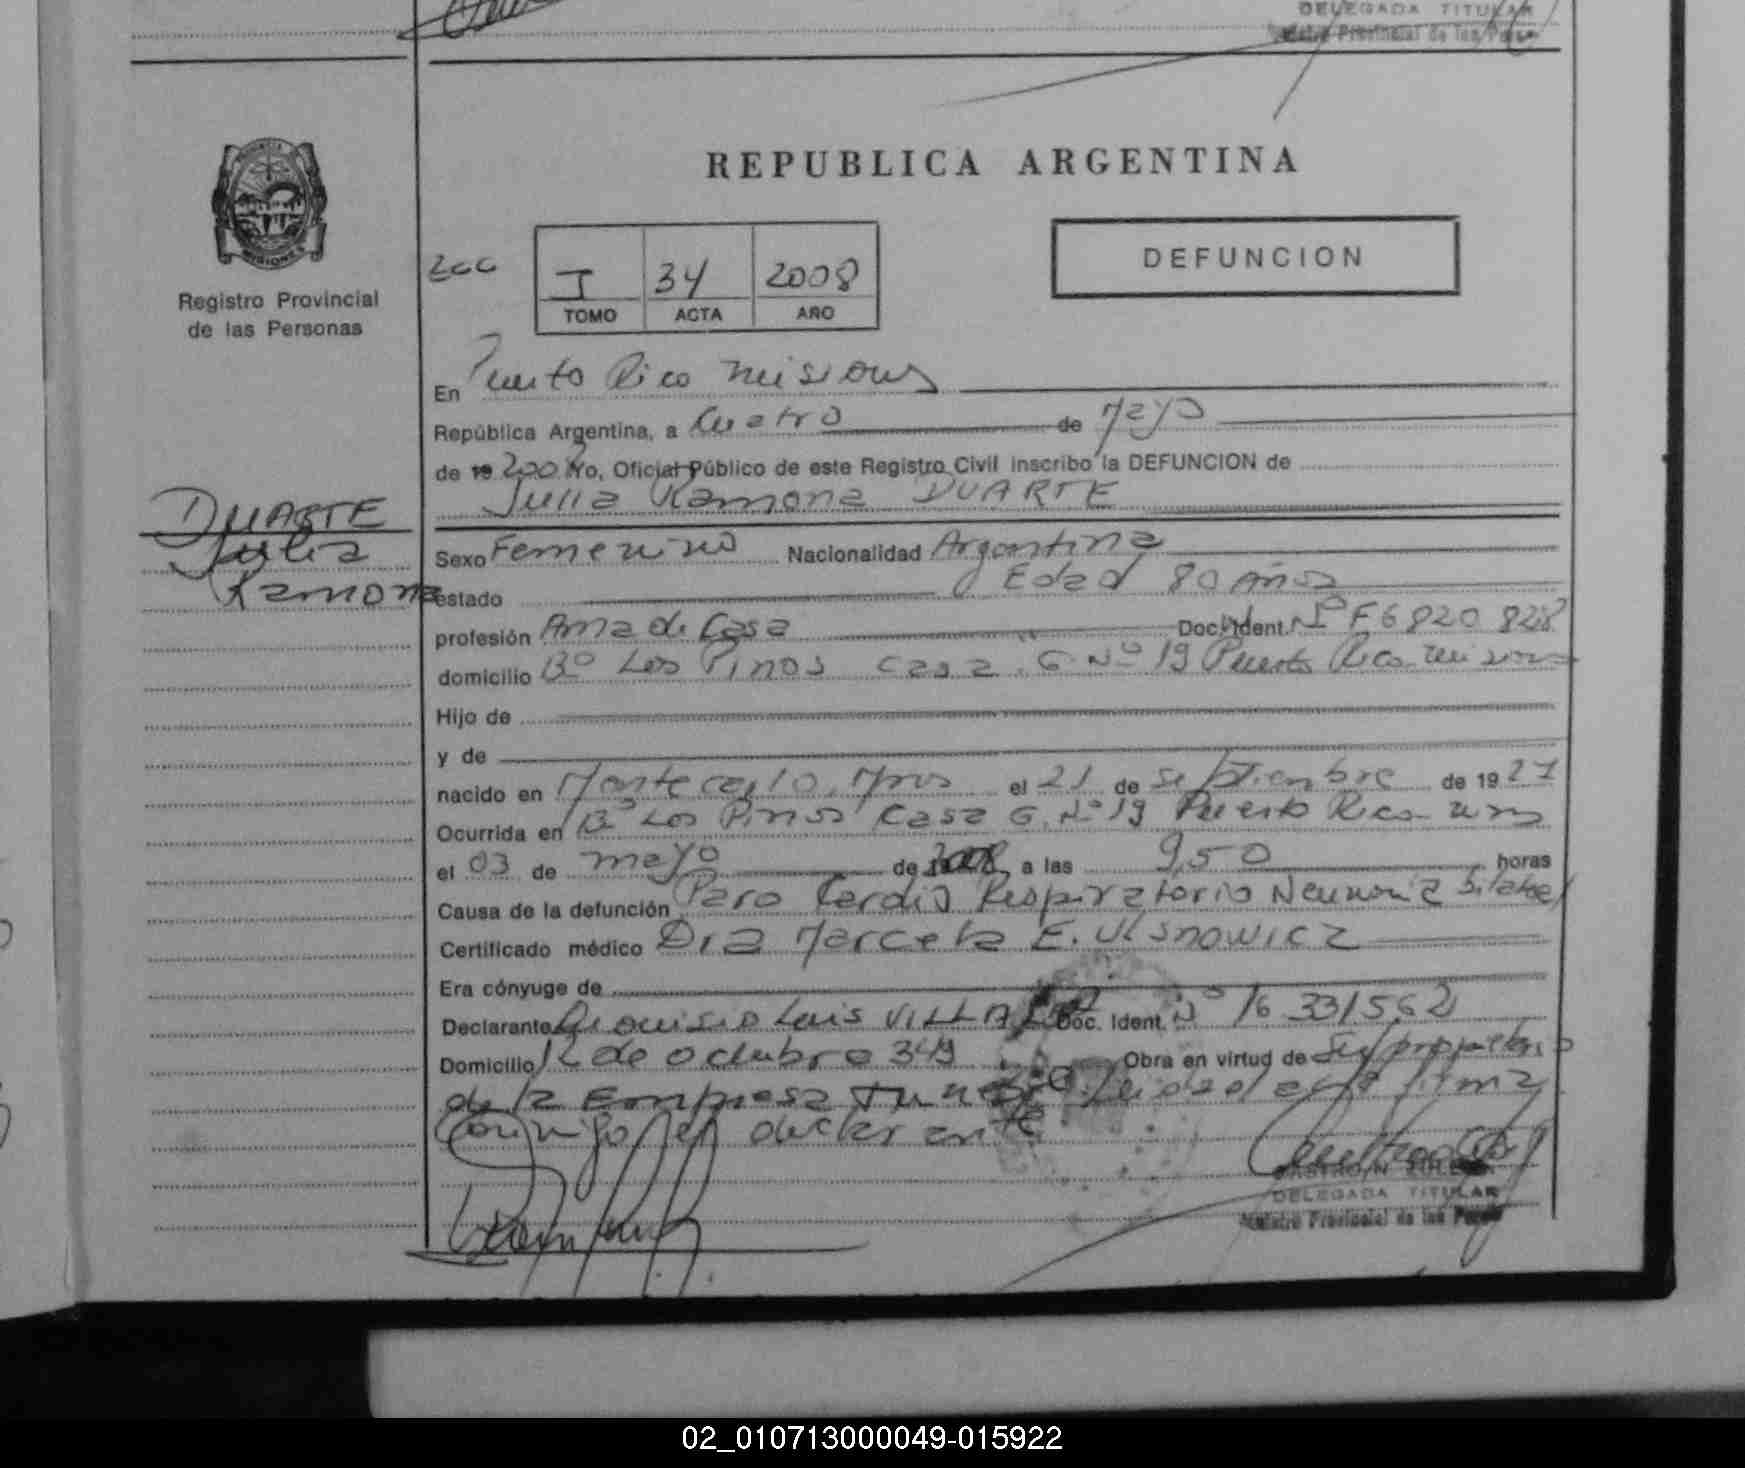 DELEGADA TITULAR
Registro Provincial de las Person
PROVINCIA
MISIONES
Registro Provincial
de las Personas
REPUBLICA ARGENTINA
DEFUNCION
200
I 34 2008
TOMO ACTA AÑO
En Puerto Rico Misiones
República Argentina, a Cuatro de Mayo
de 19 2008 Yo, Oficial Público de este Registro Civil inscribo la DEFUNCION de
Julia Ramona DUARTE
DUARTE
Julia
Ramona
Sexo Femenino Nacionalidad Argentina
Edad 80 Años
estado
profesión Ama de Casa Doc. Ident. Nº F6820828
domicilio Bº Los Pinos Casa G. Nº 19 Puerto Rico Misiones
Hijo de
y de
nacido en Montecarlo, Mnes el 21 de Septiembre de 1927
Ocurrida en Bº Los Pinos Casa G. Nº 19 Puerto Rico Mnes
el 03 de Mayo de 2008 a las 9,50 horas
Causa de la defunción Paro Cardio Respiratorio Neumonia bilateral
Certificado médico Dra Marcela E. Ulsnowicz
Era cónyuge de
Declarante Dionisio Luis Doc. Ident. Nº 16331562
Domicilio 12 de octubre 349 Obra en virtud de Ser propietario
de la Empresa firma
Conmigo el declarante
DELEGADA TITULAR
Registro Provincial de las Person
02_010713000049-015922